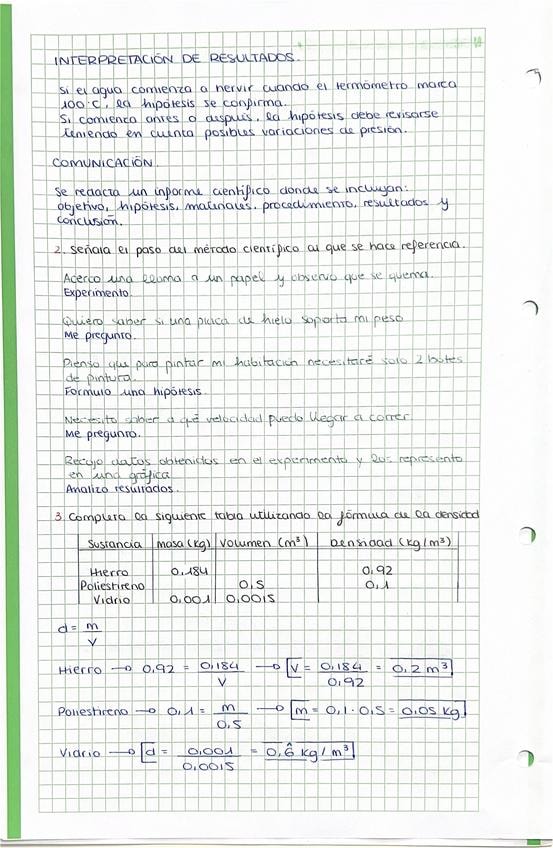 INTERPRETACIÓN DE RESULTADOS.
Si el agua comienza a hervir cuando el termómetro marca
100°C, la hipótesis se confirma.
Si comienza antes o después, la hipótesis debe revisarse
teniendo en cuenta posibles variaciones de presión.
COMUNICACIÓN.
Se redacta un informe científico donde se incluyan:
objetivo, hipótesis, materiales, procedimiento, resultados y
conclusión.
2. Señala el paso del método científico al que se hace referencia.
Acerco una llama a un papel y observo que se quema.
Experimento.
Quiero saber si una placa de hielo soporta mi peso
Me pregunto.
Pienso que para pintar mi habitación necesitaré solo 2 botes
de pintura.
Formulo una hipótesis.
Necesito saber a qué velocidad puedo llegar a correr.
Me pregunto.
Recojo datos obtenidos en el experimento y los represento
en una gráfica
Analizo resultados.
3. Completa la siguiente tabla utilizando la fórmula de la densidad
Sustancia masa (kg) Volumen (m³) Densidad (kg/m³)
Hierro 0,184 0,92
Poliestireno 0,5 0,1
Vidrio 0,001 0,0015
d = m
V
Hierro → 0,92 = 0,184 → V = 0,184 = 0,2 m³
V 0,92
Poliestireno → 0,1 = m → m = 0,1 · 0,5 = 0,05 kg
0,5
Vidrio → d = 0,001 = 0,6̂ kg/m³
0,0015